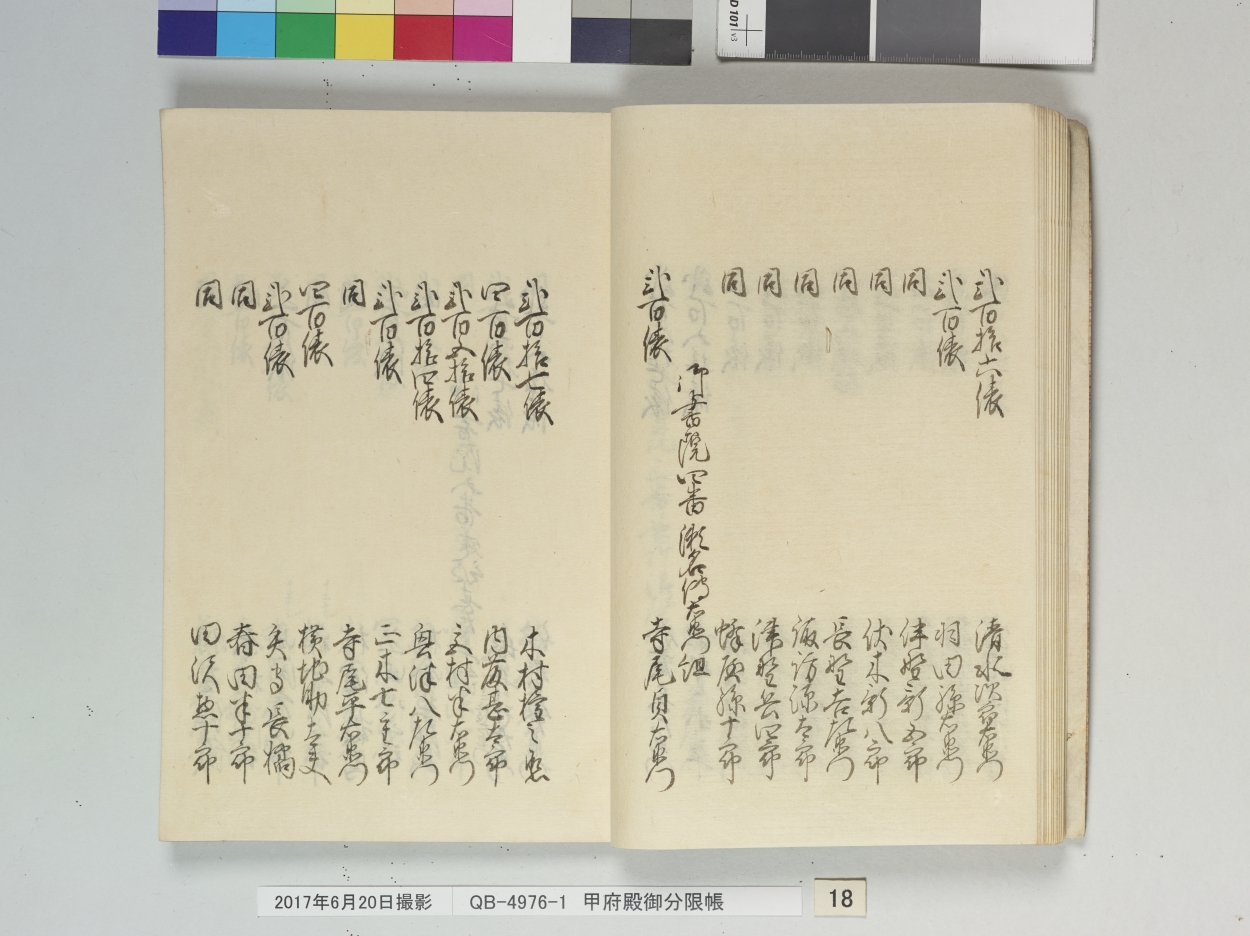 弐百拾六俵 清水次右衛門
弐百俵 羽田源右衛門
同 津野新五郎
同 伏木新八郎
同 長野吉左衛門
同 諏訪源太郎
同 津野兵四郎
同 孫十郎
御書院四番 瀬名伝右衛門組
弐百俵 寺尾貞右衛門
弐百拾七俵 木村権之
四百俵 内藤甚太郎
弐百五拾俵 村半右衛門
弐百拾四俵 奥津八左衛門
弐百俵 三木七郎
同 寺尾平右衛門
四百俵 横地助太夫
弐百俵 矢守長
同 春田半十郎
同 田沢惣十郎
2017年6月20日撮影 QB-4976-1 甲府殿御分限帳
18
D 101 v3